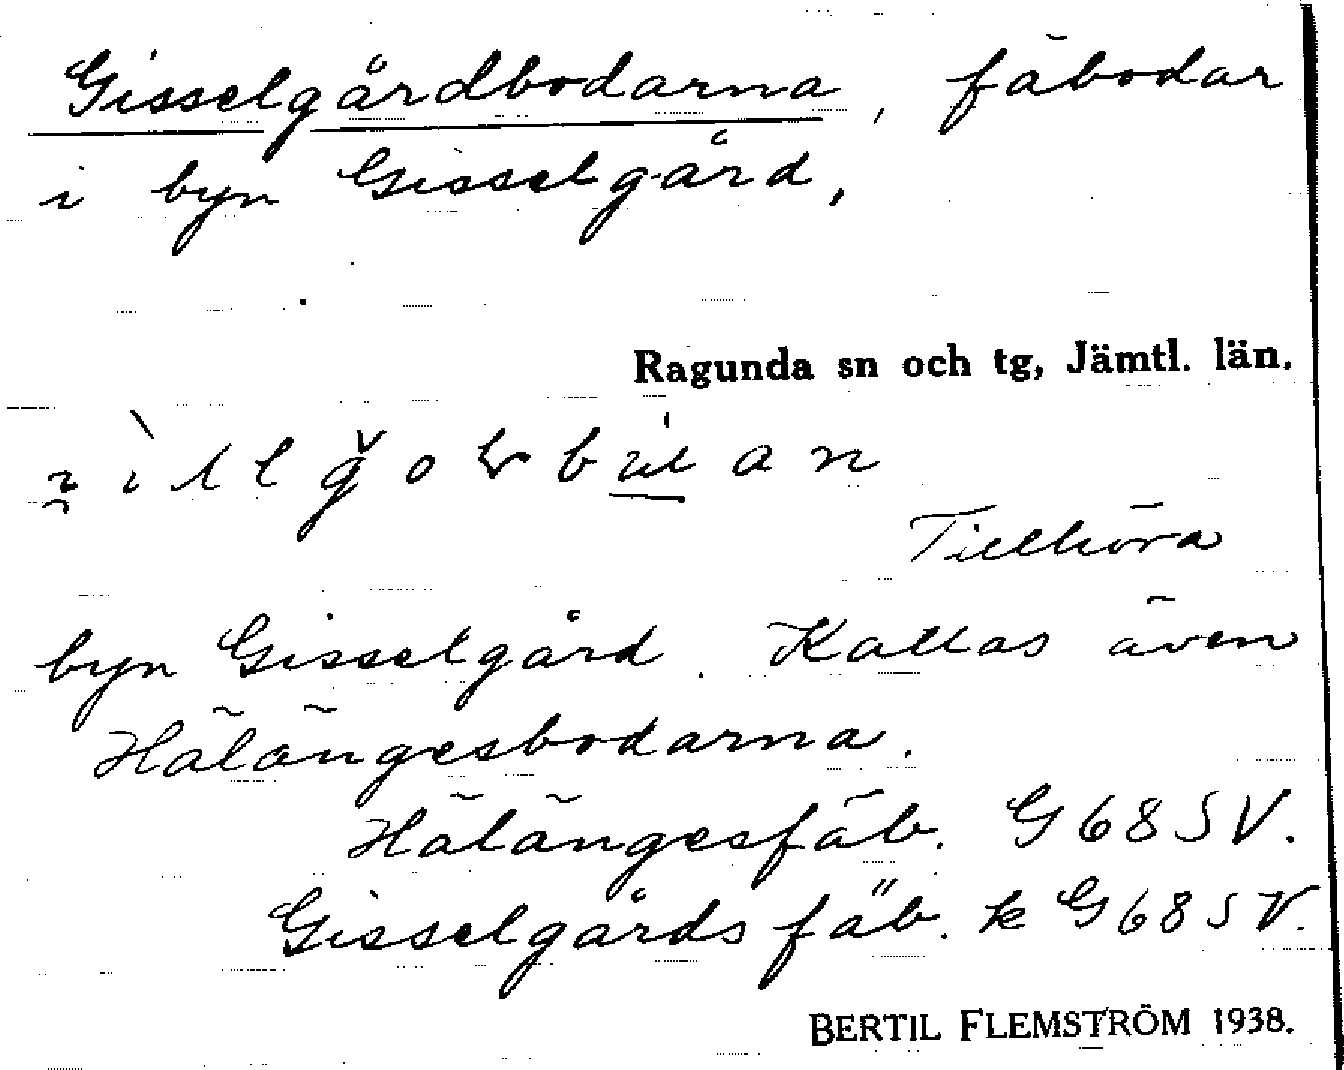 Gisselgårdbodarna, fäbodar
i byn Gisselgård,
Ragunda sn och tg, Jämtl. län.
Tillhöra
byn Gisselgård. Kallas även
Hälängesbodarna.
Hälängesfäb. G68SV.
Gisselgårds fäb. k G68SV.
BERTIL FLEMSTRÖM 1938.